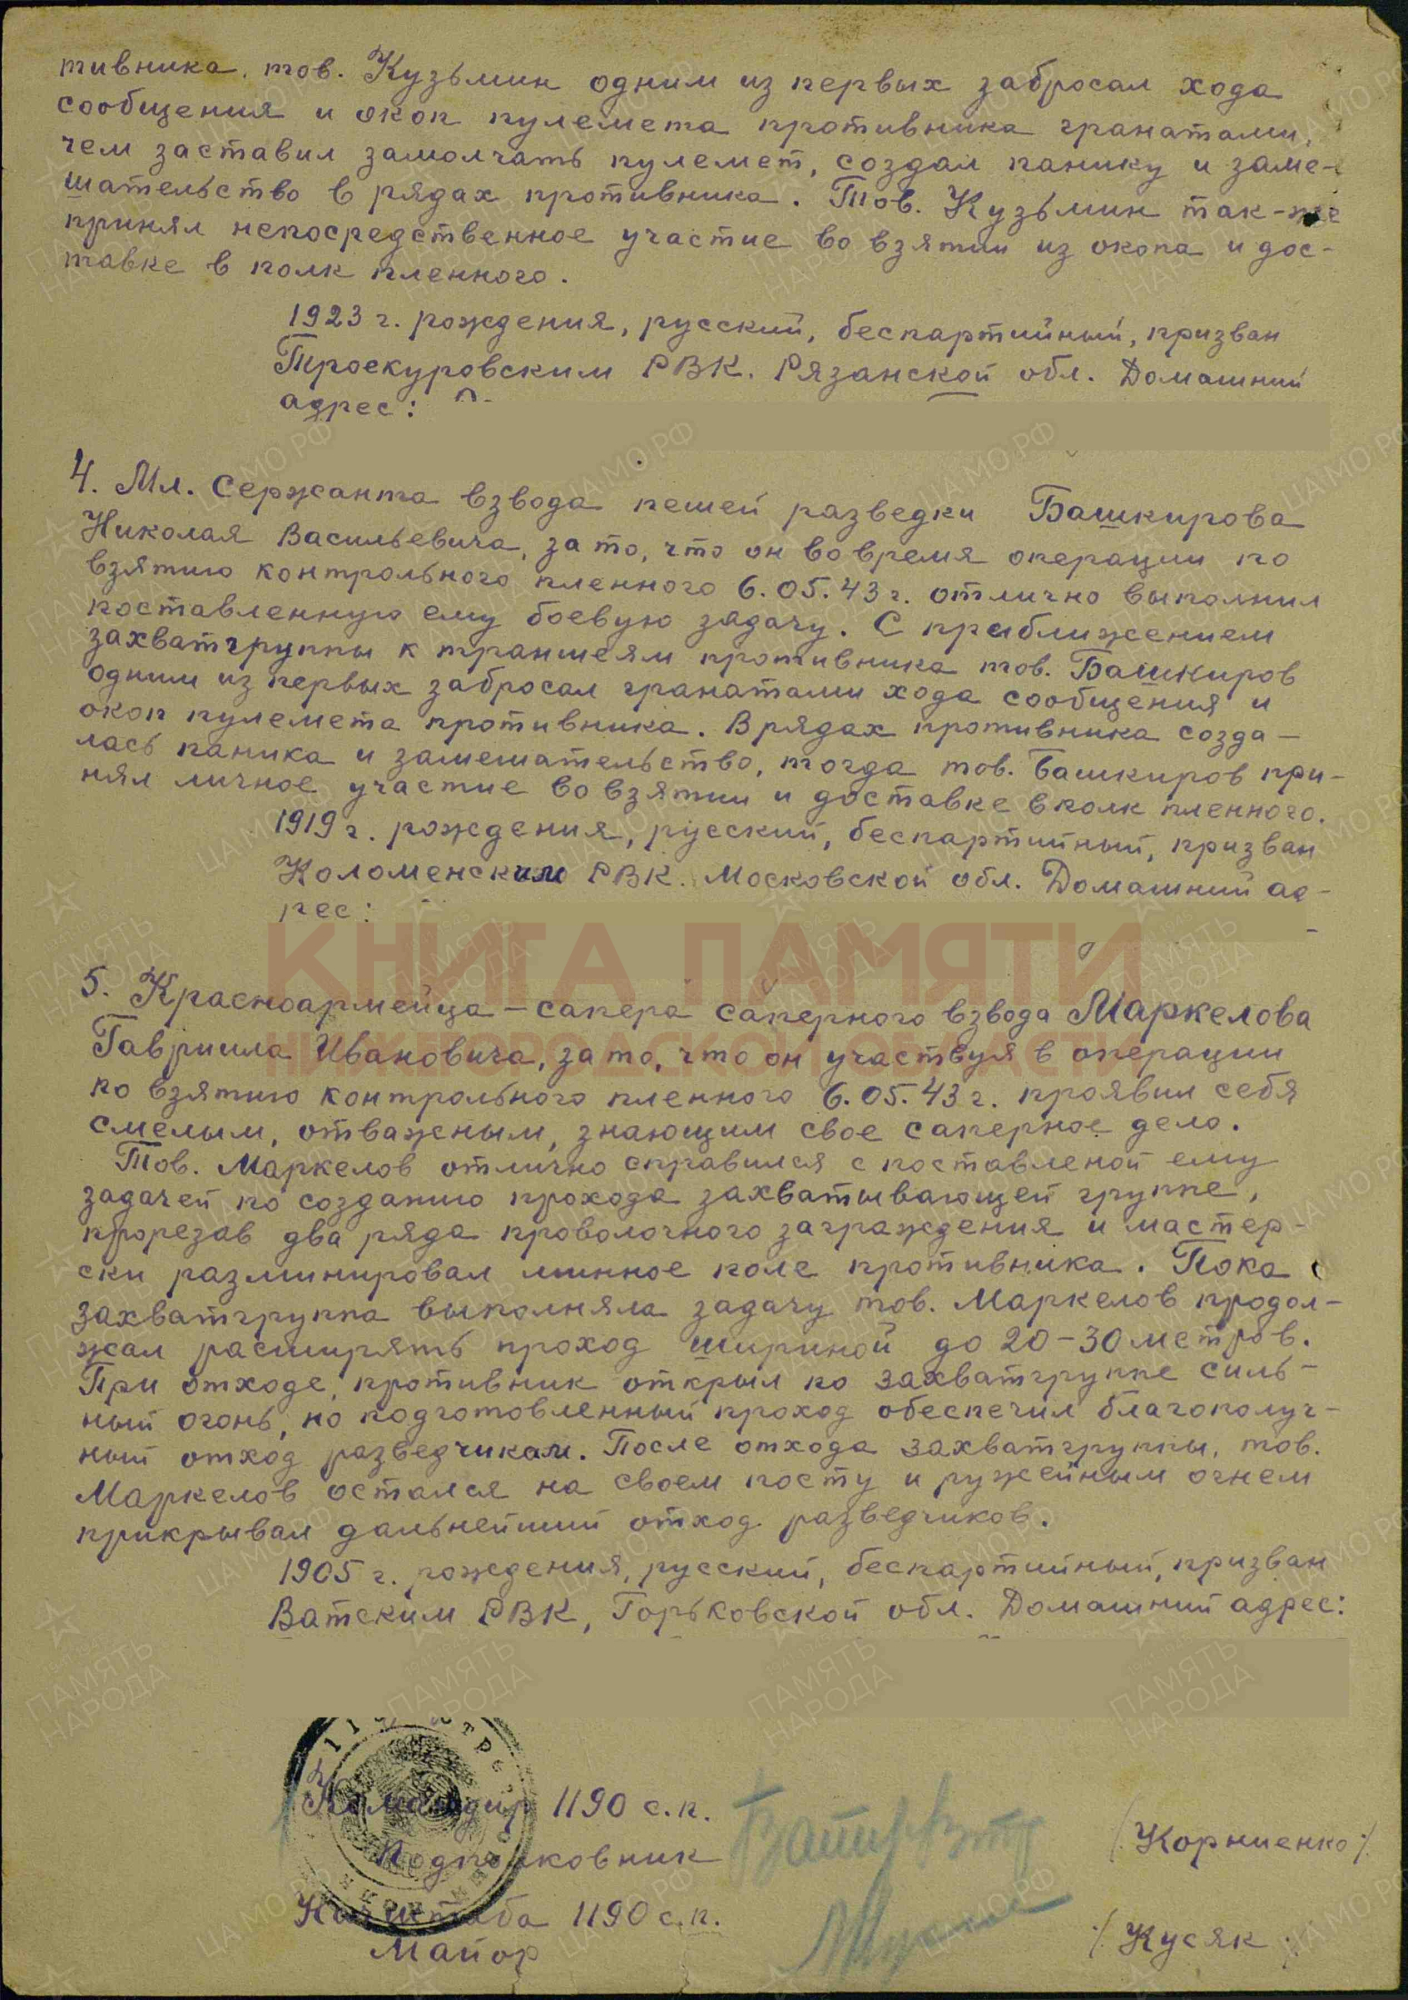 тивника, тов. Кузьмин одним из первых забросал хода
сообщения и окоп пулемета противника гранатами,
чем заставил замолчать пулемет, создал панику и заме-
шательство в рядах противника. Тов. Кузьмин так-же
принял непосредственное участие во взятии из окопа и дос-
тавке в полк пленного.
1923 г. рождения, русский, беспартийный, призван
Троекуровским РВК. Рязанской обл. Домашний
адрес:
4. Мл. Сержанта взвода пешей разведки Башкирова
Николая Васильевича, за то, что он во время операции по
взятию контрольного пленного 6.05.43 г. отлично выполнил
поставленную ему боевую задачу. С приближением
захватгруппы к траншеям противника тов. Башкиров
одним из первых забросал гранатами хода сообщения и
окоп пулемета противника. В рядах противника созда-
лась паника и замешательство, тогда тов. Башкиров при-
нял личное участие во взятии и доставке в полк пленного.
1919 г. рождения, русский, беспартийный, призван
Коломенским РВК. Московской обл. Домашний ад-
рес:
КНИГА ПАМЯТИ
НИЖЕГОРОДСКОЙ ОБЛАСТИ
5. Красноармейца - сапера саперного взвода Маркелова
Гавриила Ивановича, за то, что он участвуя в операции
по взятию контрольного пленного 6.05.43 г. проявил себя
смелым, отважным, знающим свое саперное дело.
Тов. Маркелов отлично справился с поставленой ему
задачей по созданию прохода захватывающей группе,
прорезав два ряда проволочного заграждения и мастер-
ски разминировал минное поле противника. Пока
захватгруппа выполняла задачу тов. Маркелов продол-
жал расширять проход шириной до 20-30 метров.
При отходе, противник открыл по захватгруппе силь-
ный огонь, но подготовленный проход обеспечил благополуч-
ный отход разведчикам. После отхода захватгруппы, тов.
Маркелов остался на своем посту и ружейным огнем
прикрывал дальнейший отход разведчиков.
1905 г. рождения, русский, беспартийный, призван
Ватским РВК, Горьковской обл. Домашний адрес:
Командир 1190 с.п.
Подполковник
/Корниенко/
Нач штаба 1190 с.п.
Майор
/Кусяк